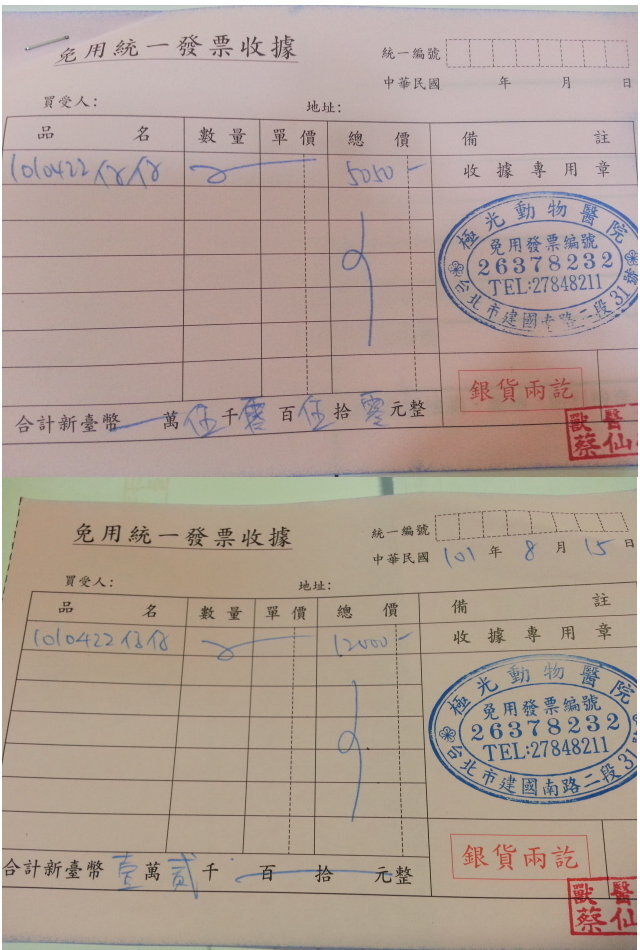 免用統一發票收據
統一編號
中華民國 年 月 日
買受人: 地址:
品名 數量 單價 總價 備註
1010422仔仔 5050- 收據專用章
極光動物醫院
免用發票編號
26378232
TEL:27848211
台北市建國南路二段31號
銀貨兩訖
合計新臺幣 萬伍千零百伍拾零元整
獸醫
蔡仙
免用統一發票收據
統一編號
中華民國 101 年 8 月 15 日
買受人: 地址:
品名 數量 單價 總價 備註
1010422仔仔 12000- 收據專用章
極光動物醫院
免用發票編號
26378232
TEL:27848211
台北市建國南路二段31
銀貨兩訖
合計新臺幣壹萬貳千 百 拾 元整
獸醫
蔡仙